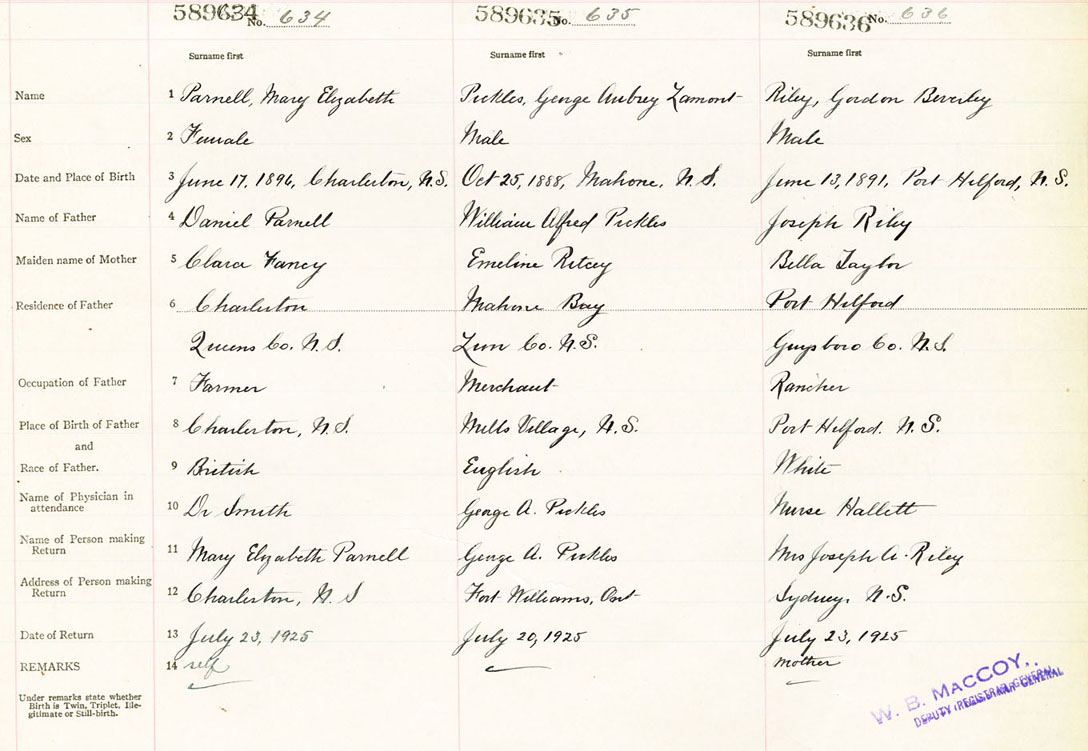 589634 No. 634 589635 No. 635 589636 No. 636
Surname first Surname first Surname first
Name 1 Parnell, Mary Elizabeth Pickles, George Aubrey Lamont Riley, Gordon Beverley
Sex 2 Female Male Male
Date and Place of Birth 3 June 17, 1896, Charleston, N.S. Oct 25, 1888, Mahone, N.S. June 13, 1891, Port Hilford, N.S.
Name of Father 4 Daniel Parnell William Alfred Pickles Joseph Riley
Maiden name of Mother 5 Clara Fancy Emeline Ritcey Bella Taylor
Residence of Father 6 Charleston Mahone Bay Port Hilford
Queens Co. N.S. Lun Co. N.S. Guysboro Co. N.S
Occupation of Father 7 Farmer Merchant Rancher
Place of Birth of Father 8 Charleston, N.S. Mills Village, N.S. Port Hilford. N.S.
and
Race of Father. 9 British English White
Name of Physician in
attendance 10 Dr Smith George A. Pickles Nurse Hallett
Name of Person making
Return 11 Mary Elizabeth Parnell George A. Pickles Mrs Joseph A. Riley
Address of Person making
Return 12 Charleston, N.S Fort Williams, Ont Sydney, N.S.
Date of Return 13 July 23, 1925 July 20, 1925 July 23, 1925
REMARKS 14 self mother
Under remarks state whether
Birth is Twin, Triplet, Ille-
gitimate or Still-birth.
W. B. MACCOY,
DEPUTY REGISTRAR GENERAL